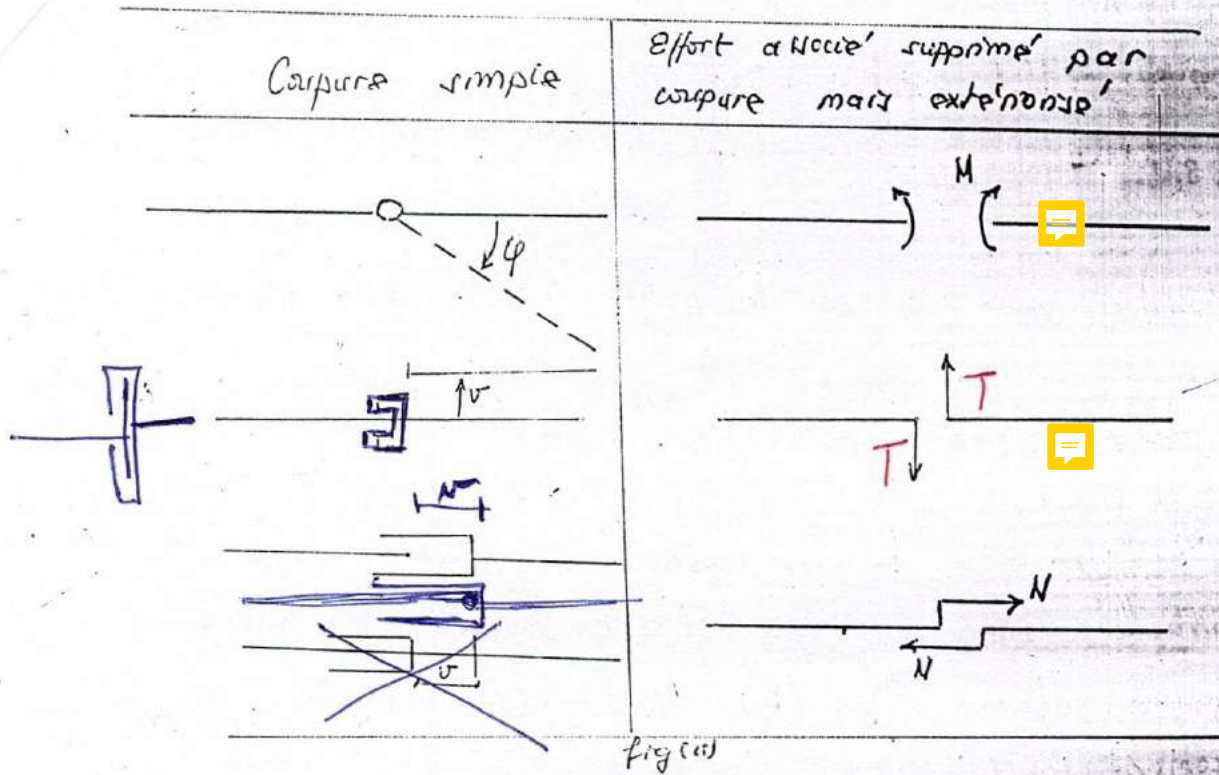 Coupure simple
Effort associé supprimé par
coupure mais extériorisé
M
φ
v
T
T
N
N
v
fig (11)